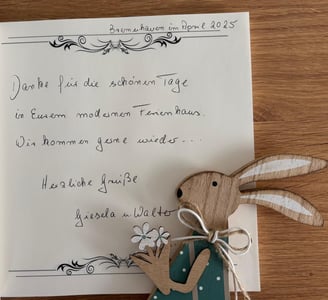 Bremerhaven im April 2025
Danke für die schönen Tage
in Eurem modernen Ferienhaus.
Wir kommen gerne wieder...
Herzliche Grüße
Giesela u. Walter